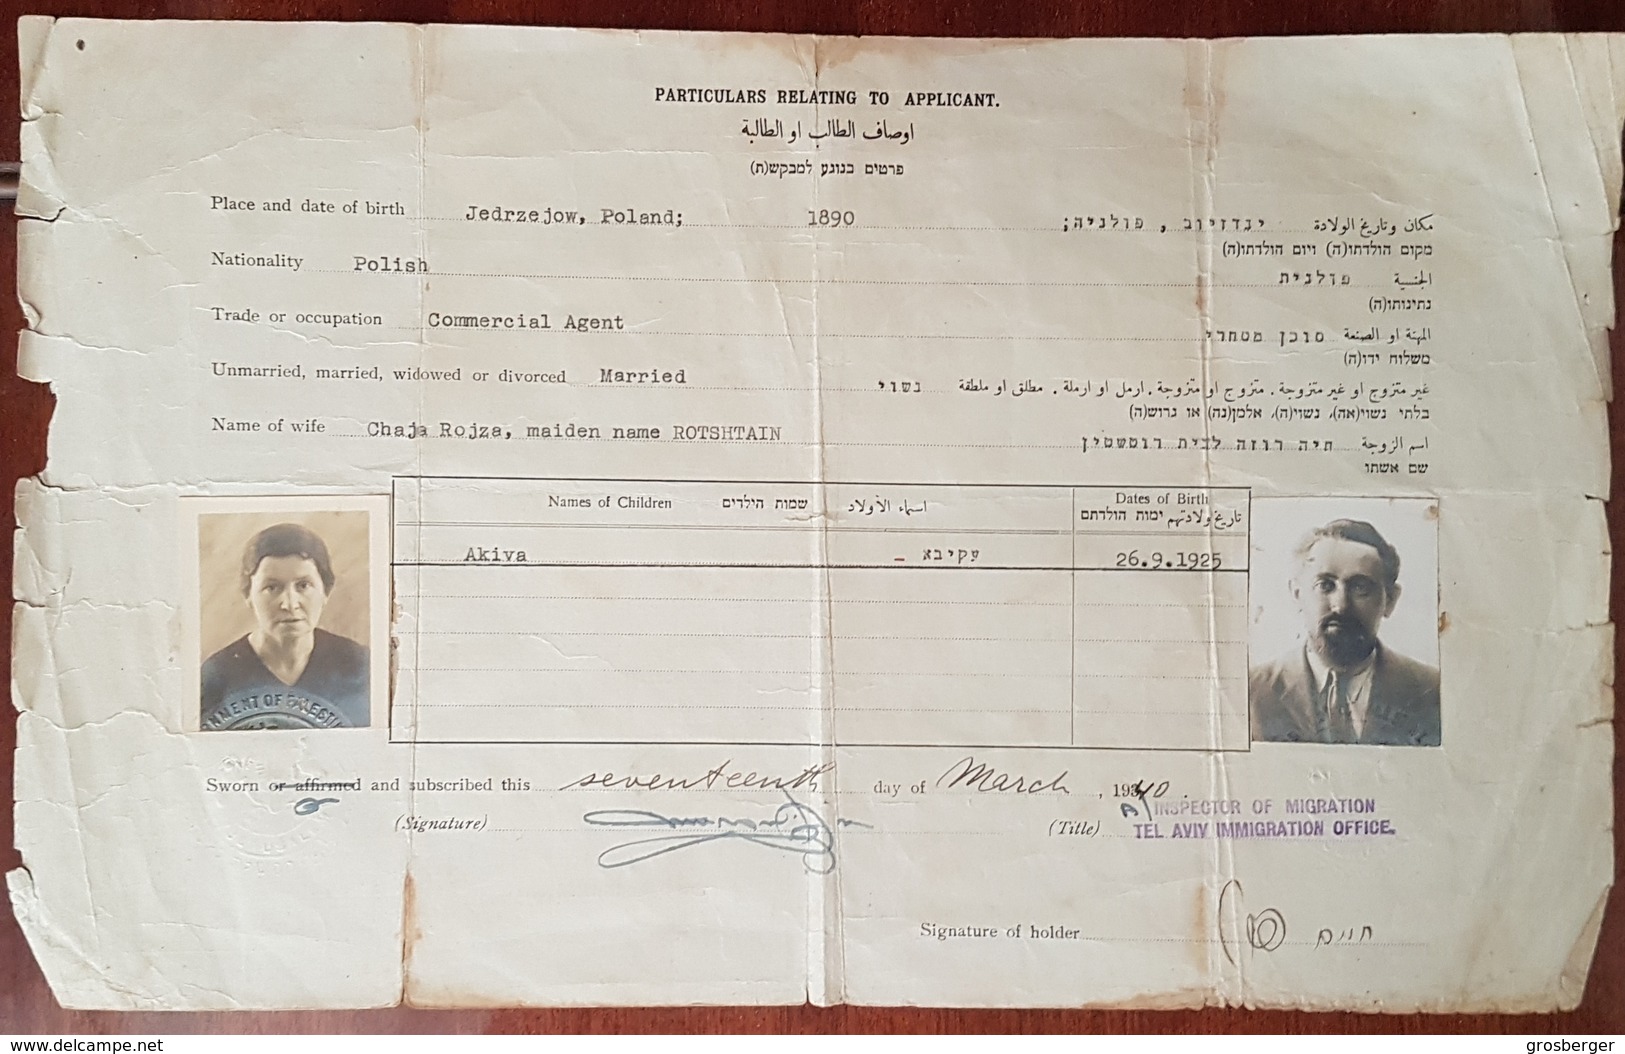 PARTICULARS RELATING TO APPLICANT.
اوصاف الطالب او الطالبة
פרטים בנוגע למבקש(ת)
Place and date of birth Jedrzejow, Poland; 1890 ינדזיוב, פולניה; مكان وتاريخ الولادة
מקום הולדתו(ה) ויום הולדתו(ה)
Nationality Polish פולנית الجنسية
נתינותו(ה)
Trade or occupation Commercial Agent סוכן מסחרי المهنة او الصنعة
משלוח ידו(ה)
Unmarried, married, widowed or divorced Married נשוי غير متزوج او غير متزوجة. متزوج او متزوجة. ارمل او ارملة. مطلق او مطلقة
בלתי נשוי(אה), נשוי(ה), אלמן(נה) או גרוש(ה)
Name of wife Chaja Rojza, maiden name ROTSHTAIN חיה רוזה לבית רוטשטין اسم الزوجة
שם אשתו
Names of Children שמות הילדים اسماء الأولاد Dates of Birth
ימות הולדתם تاريخ ولادتهم
Akiva עקיבא - 26.9.1925
NMENT OF PALESTI
Sworn or affirmed and subscribed this seventeenth day of March, 1940.
(Signature) (Title) A/ INSPECTOR OF MIGRATION
TEL AVIV IMMIGRATION OFFICE.
Signature of holder חיים
www.delcampe.net grosberger